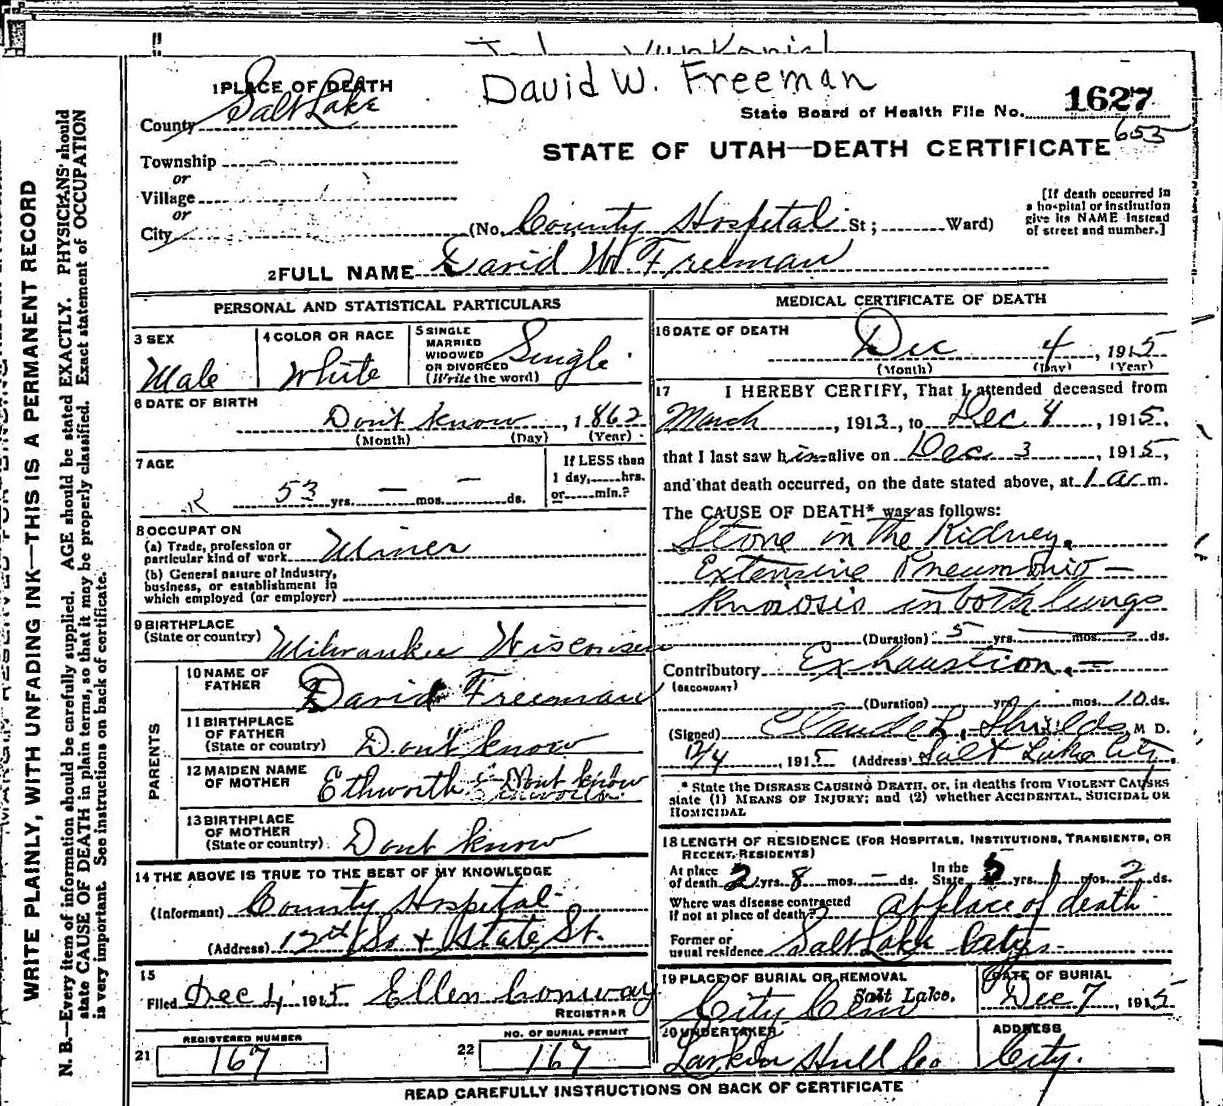 David W. Freeman
1 PLACE OF DEATH
Salt Lake
County
State Board of Health File No. 1627
653
STATE OF UTAH—DEATH CERTIFICATE
Township
or
Village
or
City
(No. County Hospital St; Ward)
[If death occurred in a hospital or institution give its NAME instead of street and number.]
2 FULL NAME David W. Freeman
PERSONAL AND STATISTICAL PARTICULARS
3 SEX
Male
4 COLOR OR RACE
White
5 SINGLE MARRIED WIDOWED OR DIVORCED (Write the word)
Single
6 DATE OF BIRTH
Don't know, 1862
(Month) (Day) (Year)
7 AGE
53 yrs. — mos. — ds.
If LESS than 1 day, hrs. or min.?
8 OCCUPATION
(a) Trade, profession or particular kind of work Miner
(b) General nature of industry, business, or establishment in which employed (or employer)
9 BIRTHPLACE
(State or country) Milwaukee Wisconsin
PARENTS
10 NAME OF FATHER David Freeman
11 BIRTHPLACE OF FATHER (State or country) Don't know
12 MAIDEN NAME OF MOTHER Ethworth Dont know
13 BIRTHPLACE OF MOTHER (State or country) Dont know
14 THE ABOVE IS TRUE TO THE BEST OF MY KNOWLEDGE
(Informant) County Hospital
(Address) 12th So + State St.
15
Filed Dec 4, 1915 Ellen Conway
REGISTRAR
21 REGISTERED NUMBER
167
22 NO. OF BURIAL PERMIT
167
MEDICAL CERTIFICATE OF DEATH
16 DATE OF DEATH
Dec 4, 1915
(Month) (Day) (Year)
17 I HEREBY CERTIFY, That I attended deceased from
March, 1913, to Dec 4, 1915,
that I last saw him alive on Dec 3, 1915,
and that death occurred, on the date stated above, at 1 a.m.
The CAUSE OF DEATH* was as follows:
Stone in the Kidney.
Extensive Pneumono-
Knoiosis in both lungs
(Duration) 5 yrs. — mos. — ds.
Contributory Exhaustion. —
(SECONDARY)
(Duration) yrs. mos. 10 ds.
(Signed) Claude L. Shields M D.
12/4, 1915 (Address) Salt Lake City.
* State the DISEASE CAUSING DEATH, or, in deaths from VIOLENT CAUSES state (1) MEANS OF INJURY; and (2) whether ACCIDENTAL, SUICIDAL OR HOMICIDAL
18 LENGTH OF RESIDENCE (FOR HOSPITALS, INSTITUTIONS, TRANSIENTS, OR RECENT RESIDENTS)
At place of death 2 yrs. 8 mos. — ds. In the State 5 yrs. 1 mos. 2 ds.
Where was disease contracted if not at place of death? At place of death
Former or usual residence Salt Lake
19 PLACE OF BURIAL OR REMOVAL
City Cem Salt Lake.
DATE OF BURIAL
Dec 7, 1915
20 UNDERTAKER
Larkin Hull Co
ADDRESS
City.
READ CAREFULLY INSTRUCTIONS ON BACK OF CERTIFICATE
WRITE PLAINLY, WITH UNFADING INK—THIS IS A PERMANENT RECORD
N. B.—Every item of information should be carefully supplied. AGE should be stated EXACTLY. PHYSICIANS should
state CAUSE OF DEATH in plain terms, so that it may be properly classified. Exact statement of OCCUPATION
is very important. See instructions on back of certificate.